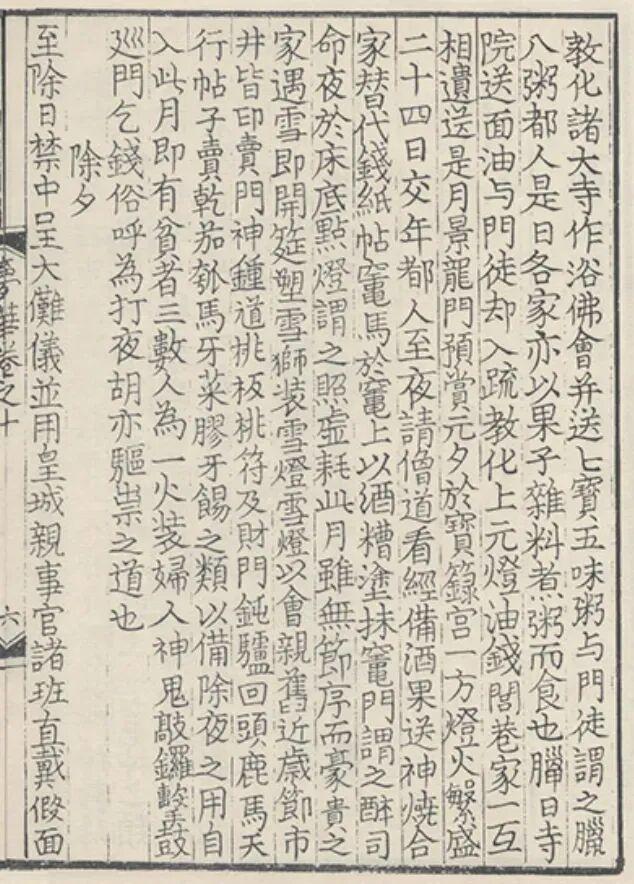 教化諸大寺作浴佛會并送七寶五味粥与門徒謂之臘
八粥都人是日各家亦以果子雜料煮粥而食也臘日寺
院送面油与門徒却入疏教化上元燈油錢閭巷家一互
相遺送是月景龍門預賞元夕於寶籙宮一方燈火繁盛
二十四日交年都人至夜請僧道看經備酒果送神燒合
家替代錢紙帖竈馬於竈上以酒糟塗抹竈門謂之醉司
命夜於床底點燈謂之照虛耗此月雖無節序而豪貴之
家遇雪即開筵塑雪獅裝雪燈雪燈以會親舊近歲節市
井皆印賣門神鍾道桃板桃符及財門鈍驢回頭鹿馬天
行帖子賣乾茄瓠馬牙菜膠牙餳之類以備除夜之用自
入此月即有貧者三數人為一火裝婦人神鬼敲鑼擊鼓
廵門乞錢俗呼為打夜胡亦驅祟之道也
除夕
至除日禁中呈大儺儀並用皇城親事官諸班直戴假面
夢華卷之十
六